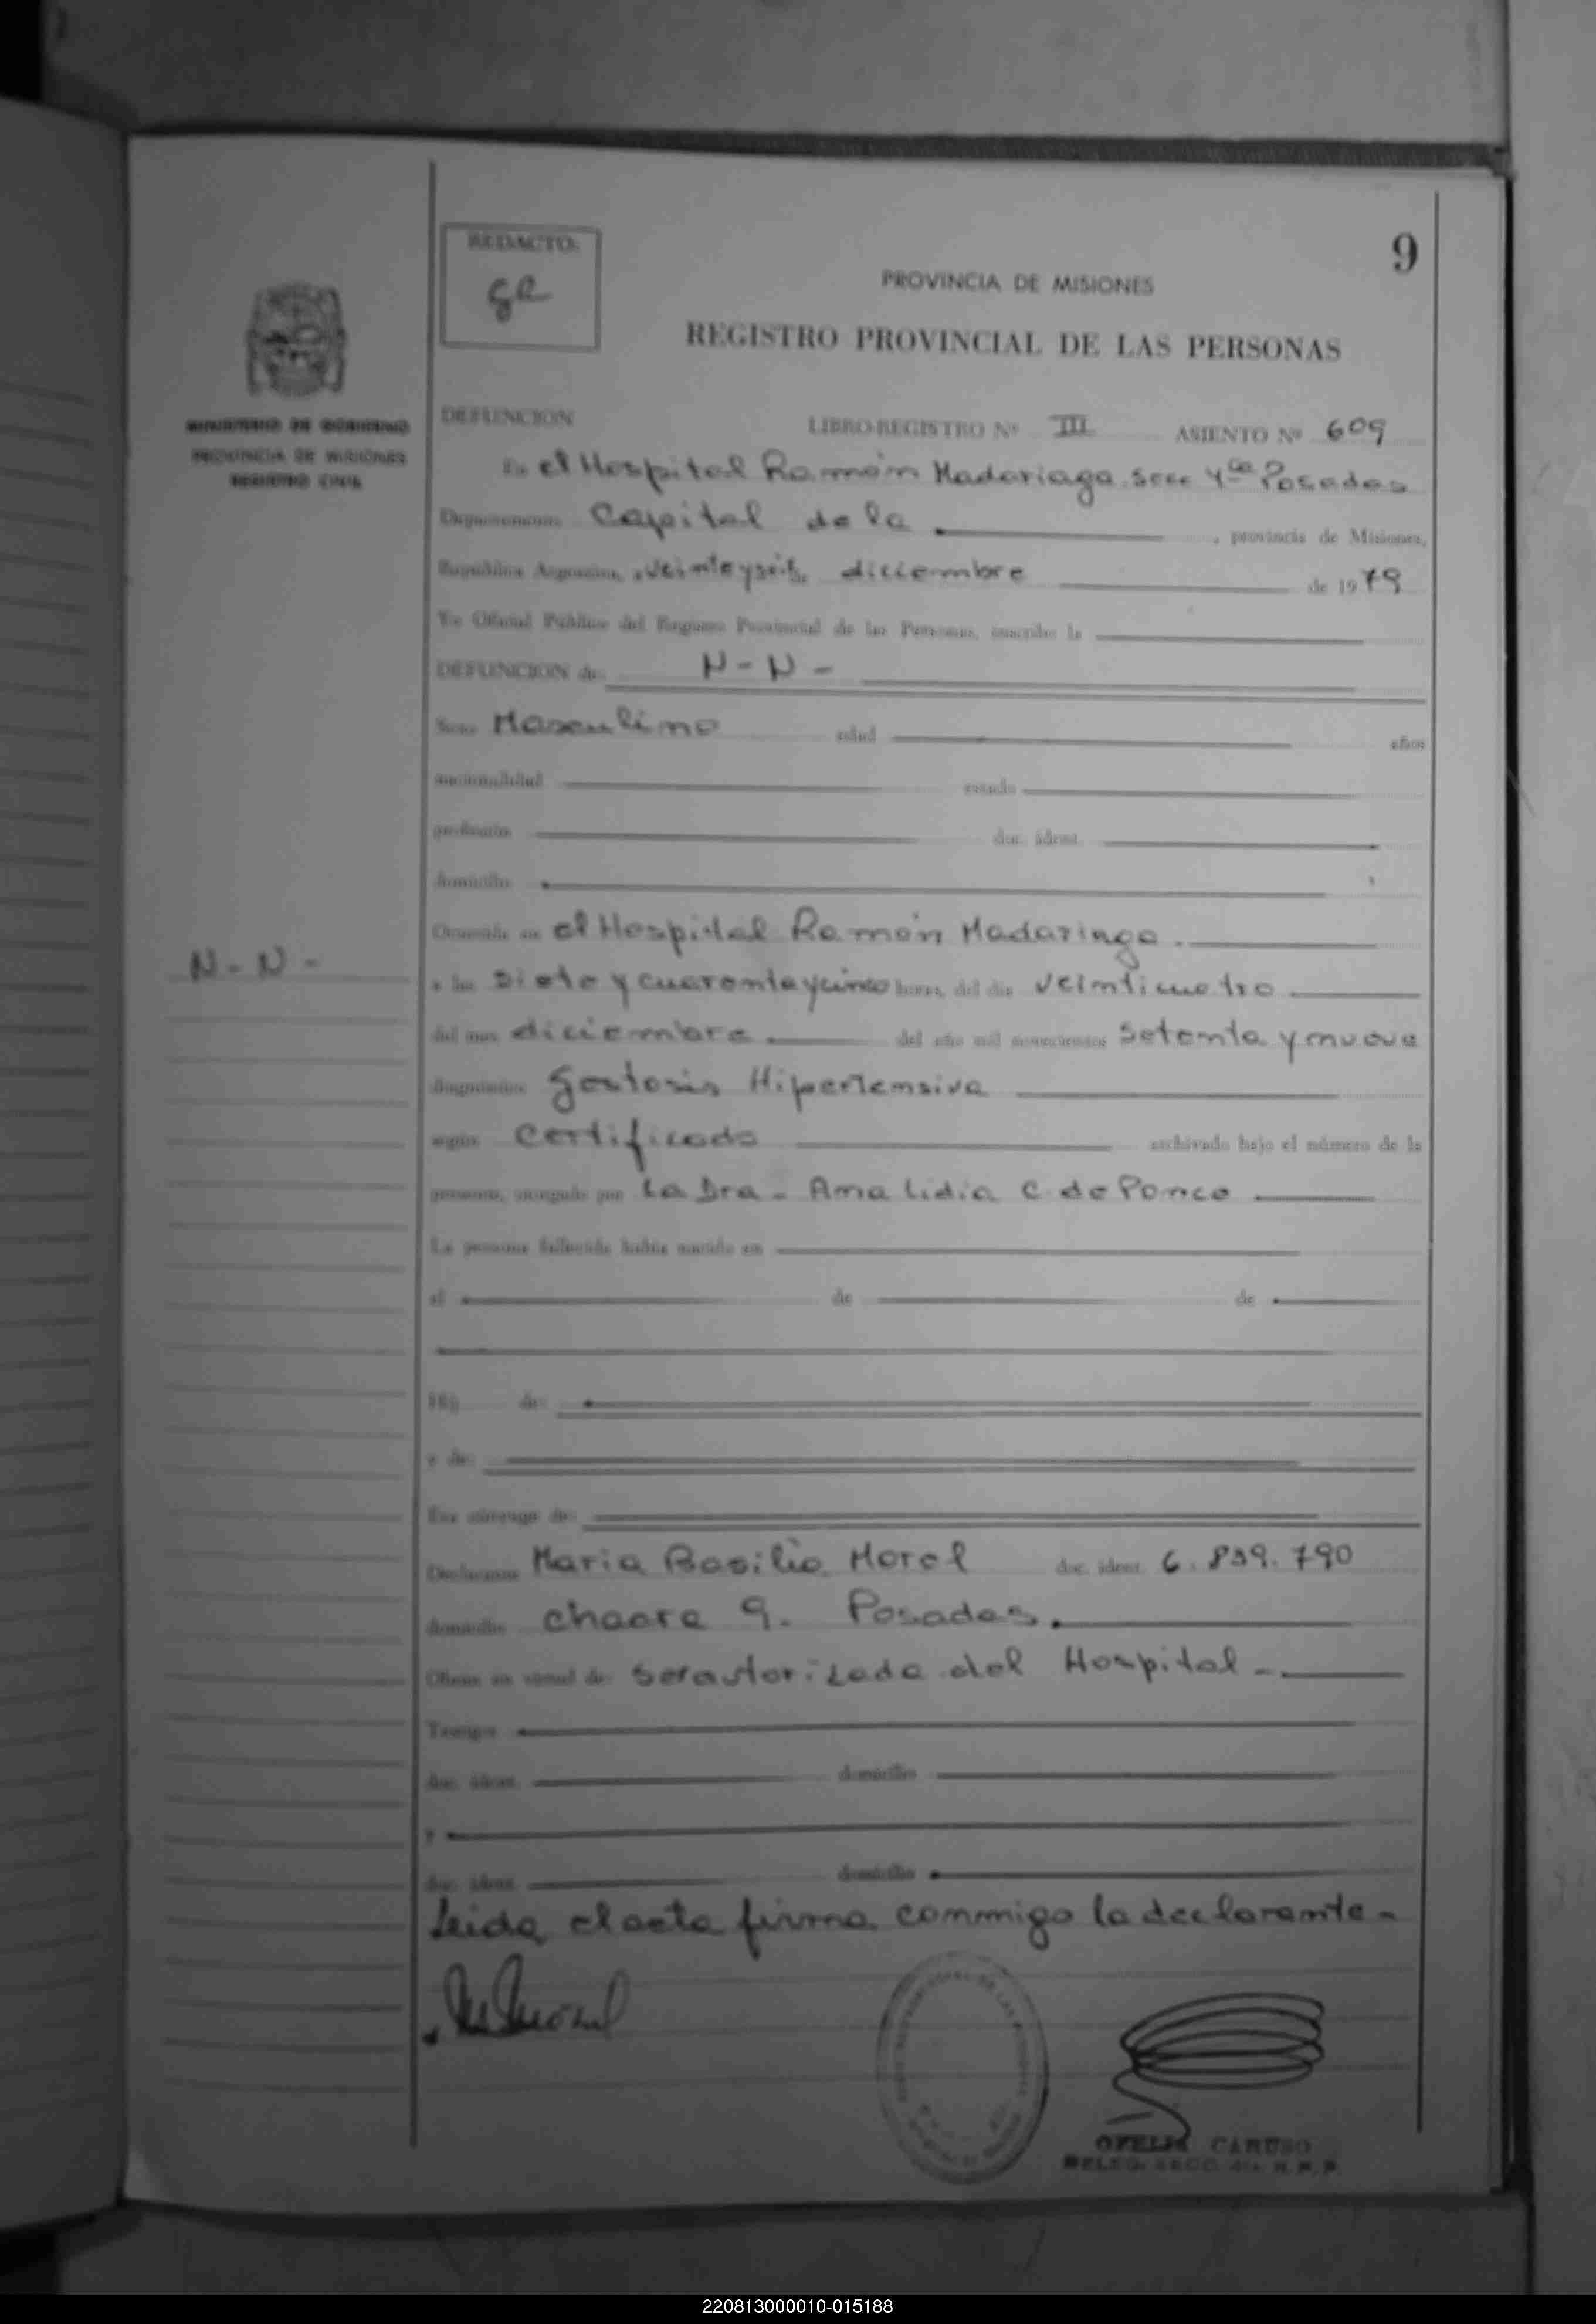 9
REDACTO:
gR
PROVINCIA DE MISIONES
REGISTRO PROVINCIAL DE LAS PERSONAS
MINISTERIO DE GOBIERNO
PROVINCIA DE MISIONES
REGISTRO CIVIL
DEFUNCION LIBRO-REGISTRO Nº III ASIENTO Nº 609
En el Hospital Ramón Madariaga. Secc 4ta Posadas
Departamento Capital de la , provincia de Misiones,
República Argentina, a diciembre de 1979
Yo Oficial Público del Registro Provincial de las Personas, inscribo la
DEFUNCION de: N - N -
Sexo Masculino edad años
nacionalidad estado
profesión doc. ident.
domicilio
Ocurrida en el Hospital Ramón Madaringa.
N - N -
a las Siete y cuarenta y cinco horas, del día Veinticuatro
del mes diciembre del año mil novecientos setenta y nueve
diagnóstico Gestosis Hipertensiva
según Certificado archivado bajo el número de la
presente, otorgado por La Dra - Ana Lidia C de Ponce
La persona fallecida había nacido en
el de de
Hij de:
y de:
Era cónyuge de:
Declarante Maria Basilia Morel doc. ident. 6.839.790
domicilio chacra 9. Posadas.
Obran en virtud de ser autorizada del Hospital -
Testigos
doc. ident. domicilio
y
doc. ident. domicilio
Leida el acta firma conmigo la declarante -
OFELIA CARUSO
DELEG. SECC. 4ta R. P. P.
220813000010-015188